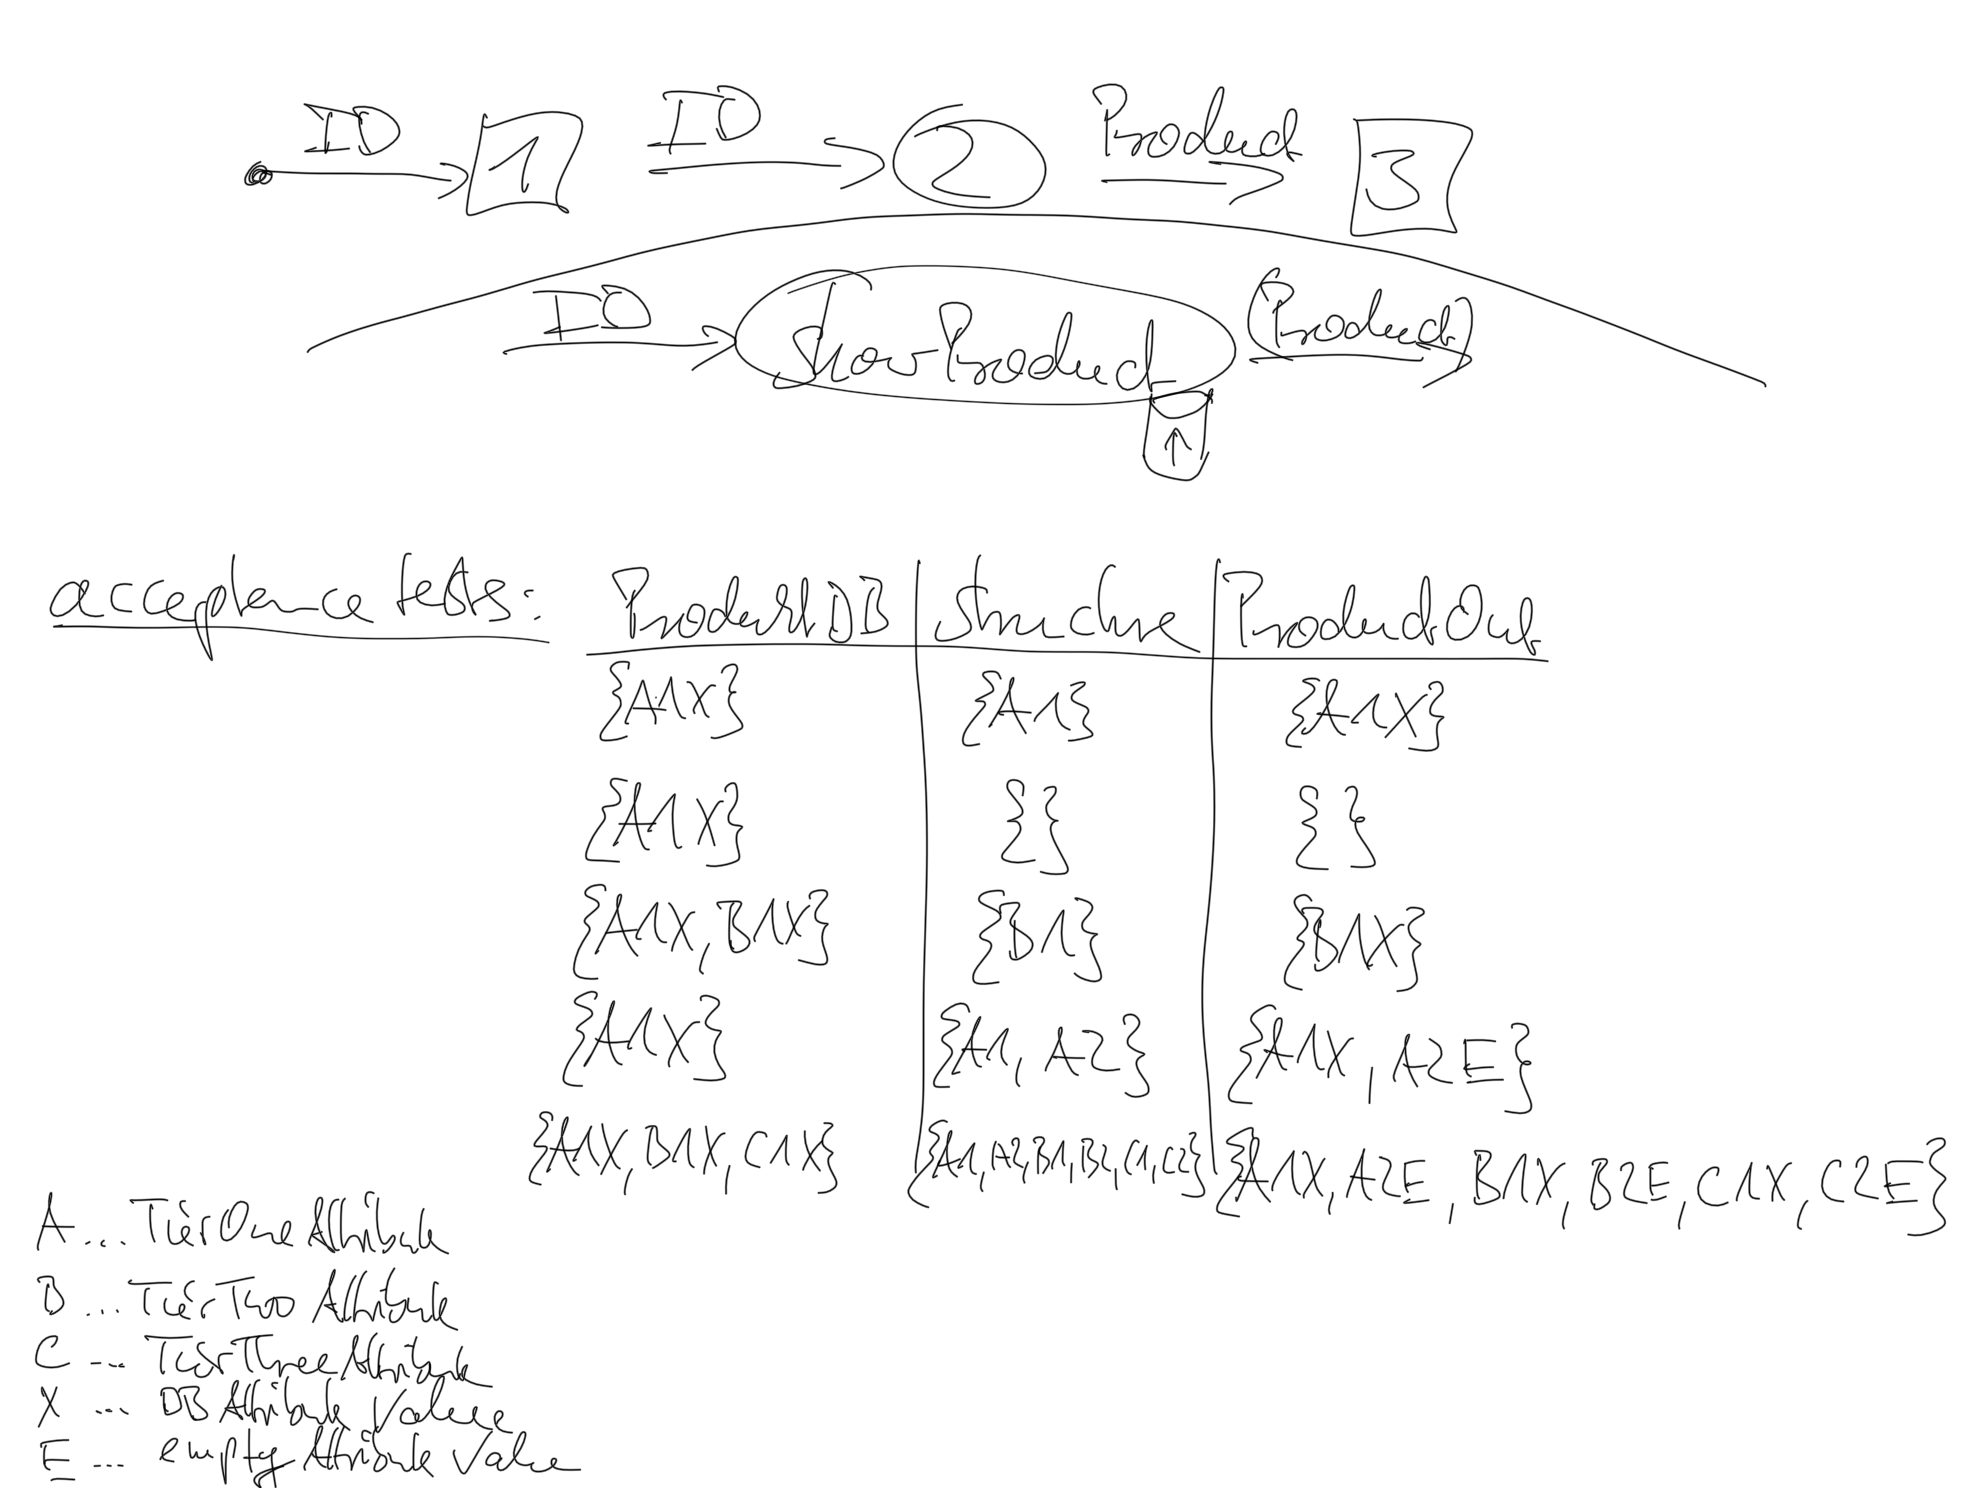 ID 1 ID 2 Product 3
ID ShowProduct (Product)
acceptance tests: ProductDB Structure ProductOut
{A1X} {A1} {A1X}
{A1X} {} {}
{A1X, B1X} {B1} {B1X}
{A1X} {A1, A2} {A1X, A2E}
{A1X, B1X, C1X} {A1, A2, B1, B2, C1, C2} {A1X, A2E, B1X, B2E, C1X, C2E}
A ... TierOne Attribute
B ... TierTwo Attribute
C ... TierThree Attribute
X ... DB Attribute Value
E ... empty Attribute Value